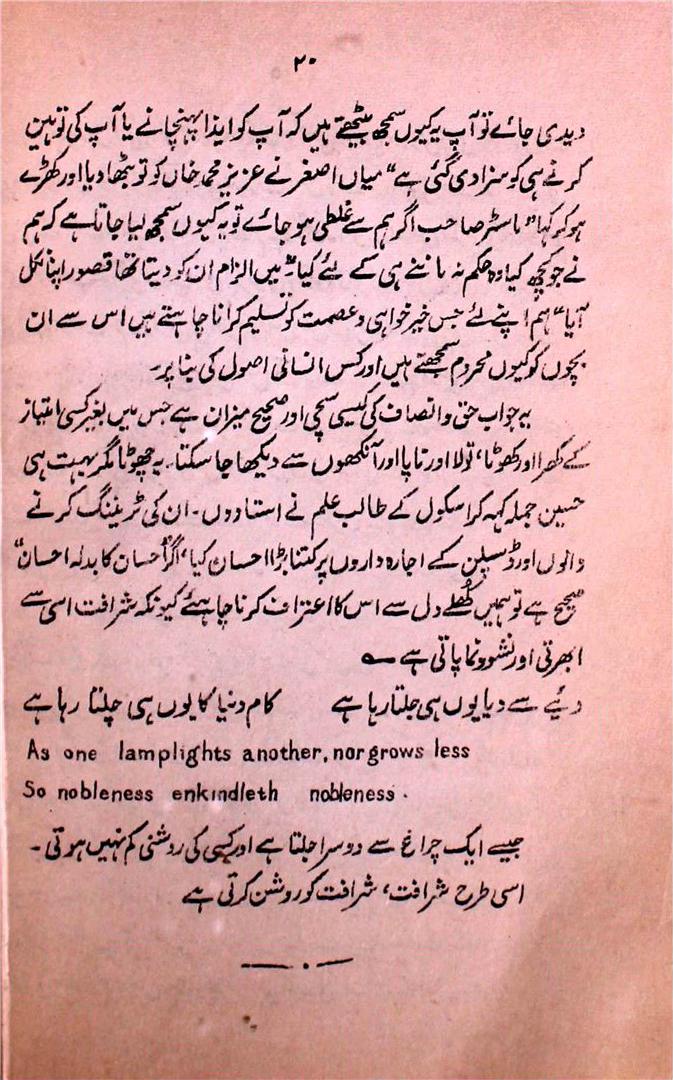 ۲۰
دیدی جائے تو آپ یہ کیوں سمجھ بیٹھتے ہیں کہ آپ کو ایذا پہنچانے یا آپ کی توہین
کرنے ہی کو سزا دی گئی ہے“ میاں اصغر نے عزیز محمد خاں کو تو بٹھا دیا اور کھڑے
ہو کر کہا” ماسٹر صاحب اگر ہم سے غلطی ہو جائے تو یہ کیوں سمجھ لیا جاتا ہے کہ ہم
نے جو کچھ کیا وہ حکم نہ ماننے ہی کے لئے کیا“ میں الزام ان کو دیتا تھا قصور اپنا نکل
آیا“ ہم اپنے لئے جس خیر خواہی و عصمت کو تسلیم کرانا چاہتے ہیں اس سے ان
بچوں کو کیوں محروم سمجھتے ہیں اور کس انسانی اصول کی بنا پر۔
یہ جواب حق و انصاف کی کیسی سچی اور صحیح میزان ہے جس میں بغیر کسی امتیاز
کے کھرا اور کھوٹا، تولا اور ناپا اور آنکھوں سے دیکھا جا سکتا۔ یہ چھوٹا مگر بہت ہی
حسین جملہ کہہ کر اسکول کے طالب علم نے استادوں۔ ان کی ٹریننگ کرنے
والوں اور ڈسپلن کے اجارہ داروں پر کتنا بڑا احسان کیا، اگر”احسان کا بدلہ احسان“
صحیح ہے تو ہمیں کھلے دل سے اس کا اعتراف کرنا چاہئے کیونکہ شرافت اسی سے
ابھرتی اور نشوونما پاتی ہے ؎
دئیے سے دیا یوں ہی جلتا رہا ہے کام دنیا کا یوں ہی چلتا رہا ہے
As one lamplights another, nor grows less
So nobleness enkindleth nobleness.
جیسے ایک چراغ سے دوسرا جلتا ہے اور کسی کی روشنی کم نہیں ہوتی۔
اسی طرح شرافت، شرافت کو روشن کرتی ہے